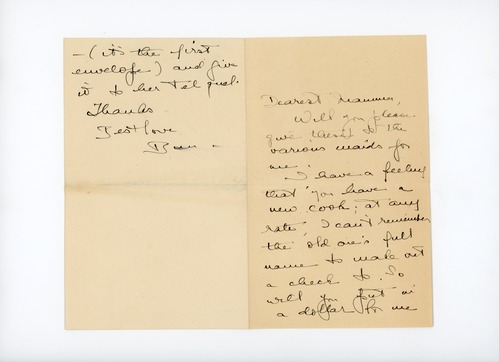 Dearest Mamma,
Will you please
give these to the
various maids for
me.
I have a feeling
that you have a
new cook; at any
rate, I can't remember
the old one's full
name to make out
a check to. So
will you put in
a dollar for me
- (it's the first
envelope) and give
it to her tel quel.
Thanks
Best love